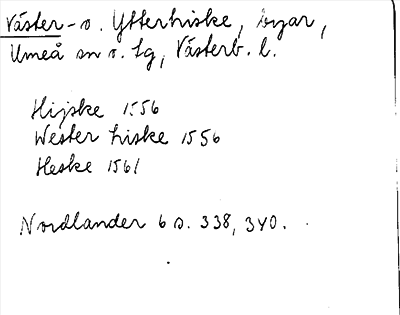 Väster- o. Ytterhiske, byar,
Umeå sn o. tg, Västerb. l.
Hijske 1556
Wester hiske 1556
Heske 1561
Nordlander 6 s. 338, 340.